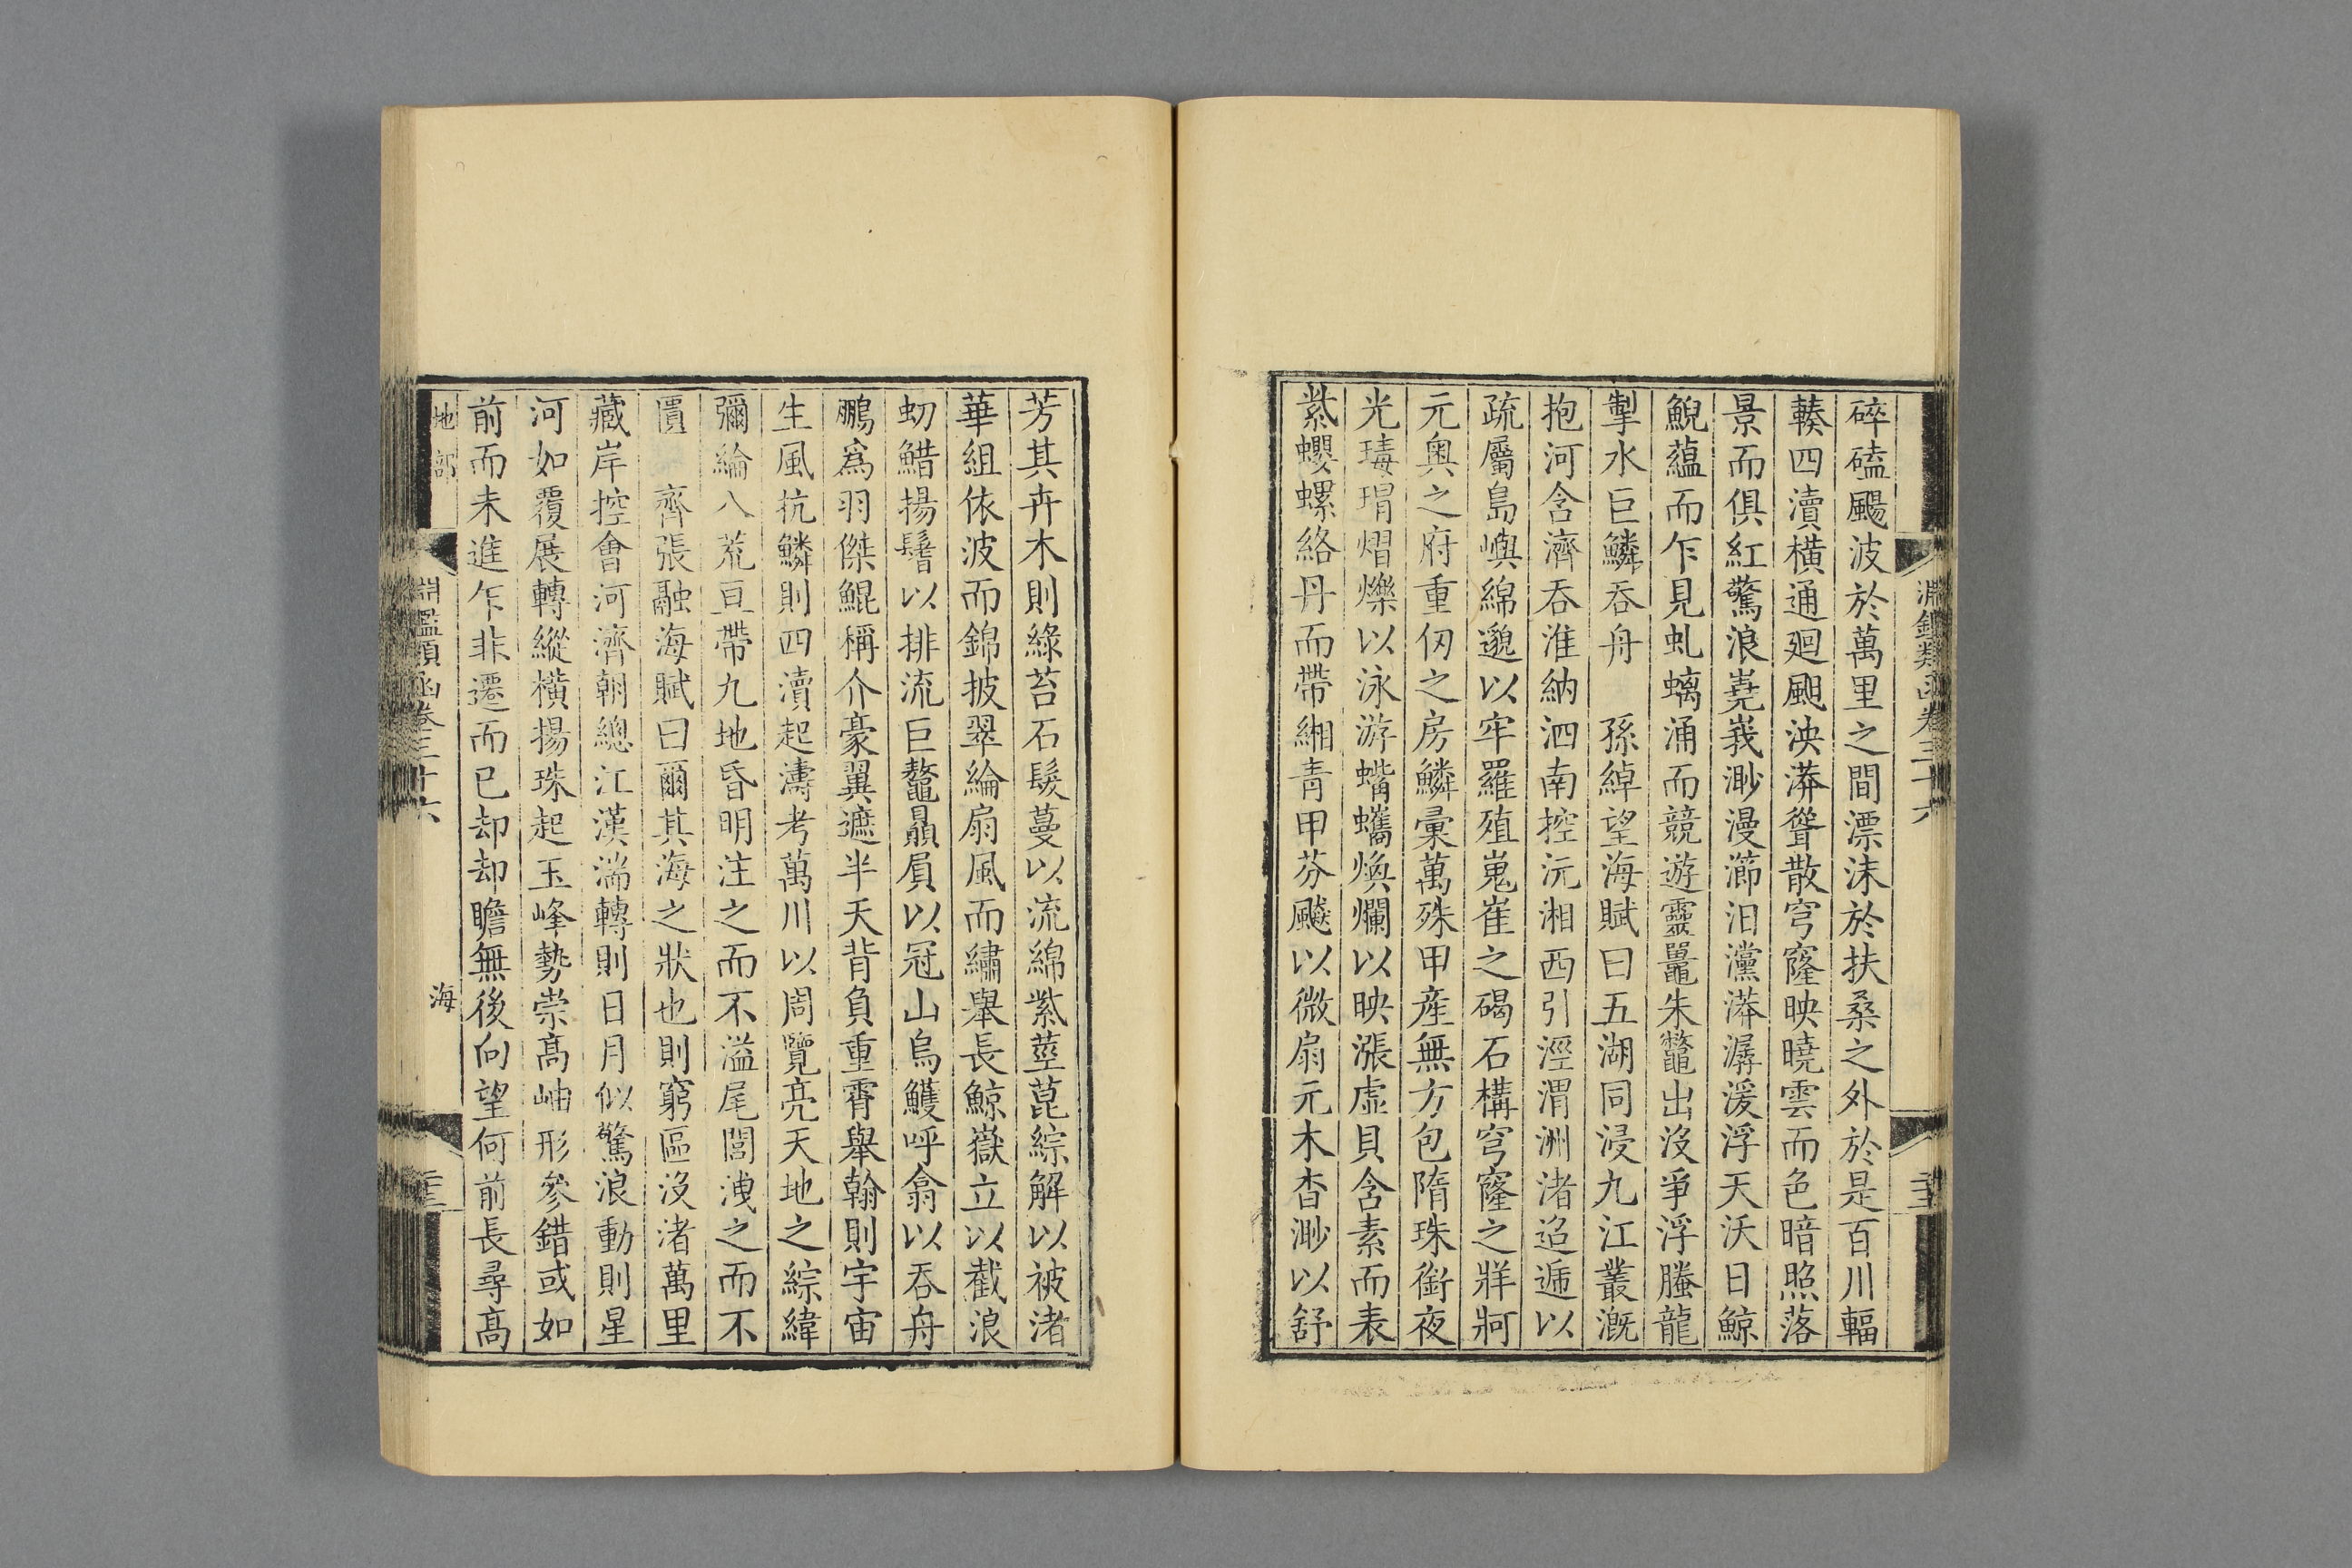 淵鑑類函卷三十六
碎磕颺波於萬里之間漂沫於扶桑之外於是百川輻
輳四瀆橫通廻颮泱漭聳散穹窿映曉雲而色暗照落
景而俱紅驚浪嶤峩渺漫瀄汨灙漭潺湲浮天沃日鯨
鯢蘊而乍見虬螭涌而競遊靈鼉朱鼈出沒爭浮螣龍
掣水巨鱗吞舟 孫綽望海賦曰五湖同浸九江叢漑
抱河含濟吞淮納泗南控沅湘西引涇渭洲渚迢遞以
疏屬島嶼綿邈以牢羅殖嵬崔之碣石構穹窿之牂牁
元奥之府重仭之房鱗彙萬殊甲産無方包隋珠銜夜
光瑇瑁熠爍以泳游蟕蠵煥爛以映漲虛貝含素而表
紫蠳螺絡丹而帶緗青甲芬飈以微扇元木杳渺以舒
芳其卉木則綠苔石髮蔓以流綿紫莖菎綜解以被渚
華組依波而錦披翠綸扇風而繡舉長鯨嶽立以截浪
虭䱜揚鬐以排流巨鼇贔屓以冠山烏鱯呼翕以吞舟
鵬爲羽傑鯤稱介豪翼遮半天背負重霄舉翰則宇宙
生風抗鱗則四瀆起濤考萬川以周覽亮天地之綜緯
彌綸八荒亘帶九地昏明注之而不溢尾閭洩之而不
匱 齊張融海賦曰爾其海之狀也則窮區沒渚萬里
藏岸控會河濟朝總江漢湍轉則日月似驚浪動則星
河如覆展轉縱橫揚珠起玉峰勢崇高岫形參錯或如
前而未進乍非遷而已却却瞻無後向望何前長尋高
地部
淵鑑類函卷三十六
海